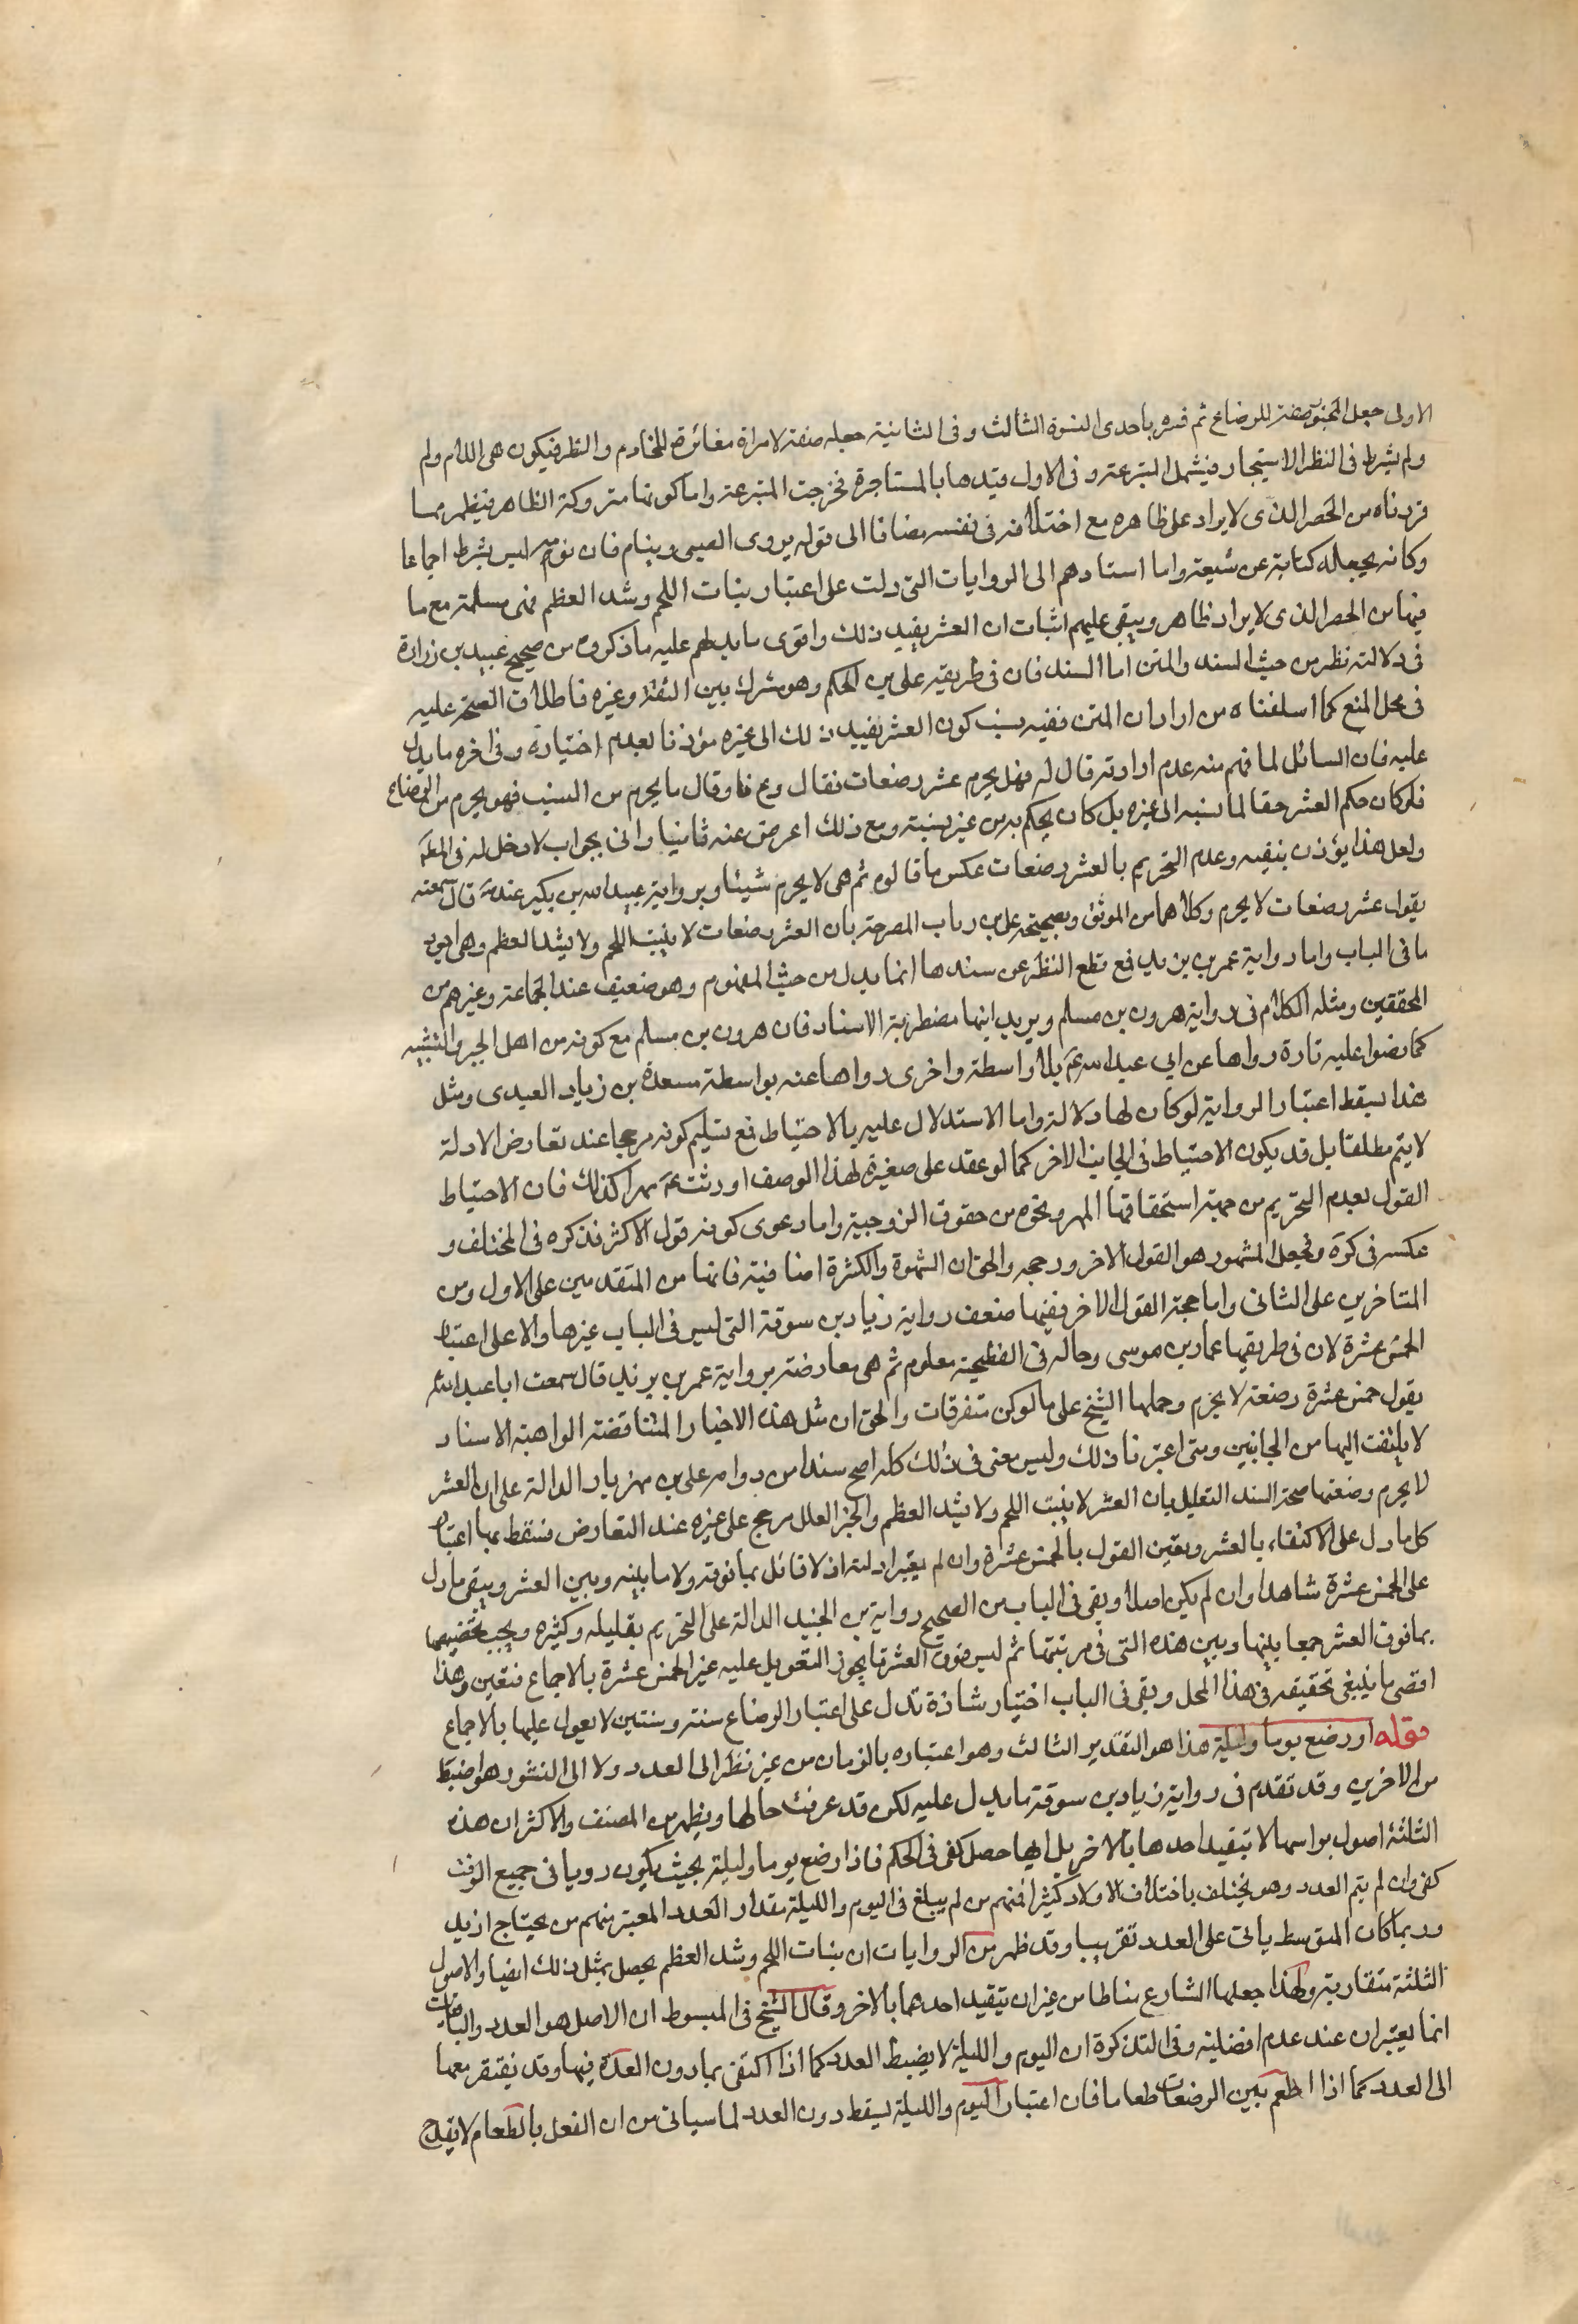 الاولى جعل المجبور صفته للرضاع ثم فسره باحدى النسوة الثالث وفى الثانية جعله صفته لامراة مغائرة للخادم والظئر فيكون هى اللام ولم
ولم يشرط فى الظئر الاستيجار فيشمل المتبرعة وفى الاول قيدها بالمستاجرة فخرجت المتبرعة واما كونها متروكة الظاهر فيظهر مما
قردناه من الحصر الذى لا يراد على ظاهره مع اختلافه فى نفسه مضافا الى قوله يروى الصبى وينام فان نومه ليس بشرط اجماعا
وكانه يجعله كناية عن شبعه واما استنادهم الى الروايات التى دلت على اعتبار نبات اللحم وشد العظم فهى مسلمة مع ما
فيها من الحصر الذى لا يراد ظاهره ويبقى عليهم اثبات ان العشر يفيد ذلك واقوى ما يدلهم عليه ما ذكروه من صحيح عبيد بن زرارة
فى دلالته نظر من حيث السند والمتن اما السند فان فى طريقه على بن الحكم وهو مشترك بين الثقة وغيره فاطلاق الصحة عليه
فى محل المنع كما اسلفناه من ارادان المتن ففيه نسب كون العشر يفيد ذلك الى غيره مؤذنا بعدم اختياره وفى اخره ما يدل
عليه فان السائل لما فهم منه عدم ارادته قال له فهل يحرم عشر رضعات فقال دع هذا وقال ما يحرم من النسب فهو يحرم من الرضاع
فلو كان حكم العشر حقا لما نسبه الى غيره بل كان يحكم به من غير نسبة ومع ذلك اعرض عنه ثانيا واتى بجواب لا دخل له فى المقام
ولعل هذا يؤذن بنفيه وعدم التحريم بالعشر رضعات عكس ما قالوه ثم هى لا يحرم شيئا وبرواية عبيد الله بن بكير عنه قال سمعته
يقول عشر رضعات لا يحرم وكلاهما من الموثق وبصحيحة على بن رياب المصرحة بان العشر رضعات لا ينبت اللحم ولا يشد العظم وهى اجود
ما فى الباب واما رواية عمر بن يزيد فمع قطع النظر عن سندها انما يدل من حيث المفهوم وهو ضعيف عند الجماعة وغيرهم من
المحققين ومثله الكلام فى رواية هرون بن مسلم ويريد انها مضطربة الاسناد فان هرون بن مسلم مع كونه من اهل الجبر والتشبيه
كما نصوا عليه تارة رواها عن ابى عبد الله عم بلا واسطة واخرى رواها عنه بواسطة مسعدة بن زياد العبدى ومثل
هذا يسقط اعتبار الرواية لو كان لها دلالة واما الاستدلال عليه بالاحتياط فمع تسليم كونه مرجحا عند تعارض الادلة
لا يتم مطلقا بل قد يكون الاحتياط فى الجانب الاخر كما لو عقد على صغيرة لهذا الوصف او رثت مهرا كذلك فان الاحتياط
القول بعدم التحريم من جهة استحقاقها المهر ونحوه من حقوق الزوجية واما دعوى كونه قول الاكثر فذكره فى المختلف و
عكس فى كره وجعل المشهور هو القول الاخر ورجحه والحق ان الشهرة والكثرة اضافية فانها من المتقدمين على الاول ومن
المتاخرين على الثانى واما حجة القول الاخر ففيها ضعف رواية زياد بن سوقة التى ليس فى الباب غيرها والا على اعتبار
الخمس عشرة لان فى طريقها عمار بن موسى وحاله فى الفطحية معلوم ثم هى معارضة برواية عمر بن يزيد قال سمعت ابا عبد الله
يقول خمس عشرة رضعة لا يحرم وحملها الشيخ على ما لو كن متفرقات والحق ان مثل هذه الاخبار المتناقضة الواهبة الاسناد
لا يلتفت اليها من الجانبين ومتى اعتبرنا ذلك وليس معنى فى ذلك كله اصح سندا من رواه على بن مهزيار الدالة على ان العشر
لا يحرم وضعتها صحة السند التعليل بان العشر لا ينبت اللحم ولا يشد العظم والخبر المعلل مرجح على غيره عند التعارض فسقط بها اعتبار
كل ما دل على الاكتفاء بالعشر وبقين القول بالخمس عشرة وان لم يعتبر ادلته اذ لا قائل بما فوقه ولا ما بينه وبين العشر ويبقى ما دل
على الخمس عشرة شاهدا وان لم يكن اصلا وبقى فى الباب من الصحيح رواية بن الجنيد الدالة على التحريم بقليله وكثيره ويجب تخصيصها
بما فوق العشر جمعا بينها وبين هذه التى فى مرتبتها ثم ليس فوق العشر ما يجوز التعويل عليه غير الخمس عشرة بالاجماع فتعين وهذا
اقصى ما ينبغى تحقيقه فى هذا المحل وبقى فى الباب اختيار شاذة تدل على اعتبار الرضاع سنة وسنتين لا يعول عليها بالاجماع
قوله او رضع يوما وليلة هذا هو التقدير الثالث وهو اعتباره بالزمان من غير نظر الى العدد ولا الى النشور وهو اضبط
من الاخرين وقد تقدم فى رواية زياد بن سوقة ما يدل عليه لكن قد عرفت حالها ويظهر من المصنف والاكثر ان هذه
الثلثة اصول براسها لا تتقيد احدها بالاخر بل ايها حصل كفى فى الحكم فاذا رضع يوما وليلة بحيث يكون رويا فى جميع الوقت
كفى وان لم يتم العدد وهو يختلف باختلاف الاولاد كثيرا فمنهم من لم يبلغ فى اليوم والليلة مقدار العدد المعتبر منهم من يحتاج ازيد
وربما كان المتوسط ياتى على العدد تقريبا وقد ظهر من الروايات ان نبات اللحم وشد العظم يحصل بمثل ذلك ايضا والاصول
الثلثة متقاربة ولهذا جعلها الشارع مناطا من غير ان يتقيد احدهما بالاخر وقال الشيخ فى المبسوط ان الاصل هو العدد والباقيان
انما يعتبران عند عدم افضليته وفى التذكرة ان اليوم والليلة لا يضبط العدد كما اذا اكتفى بما دون العدة فيها وقد يفتقر معها
الى العدد كما اذا اطعم بين الرضعات طعاما فان اعتبار اليوم والليلة يسقط دون العدد لما سياتى من ان الفصل بالطعام لا يقدح